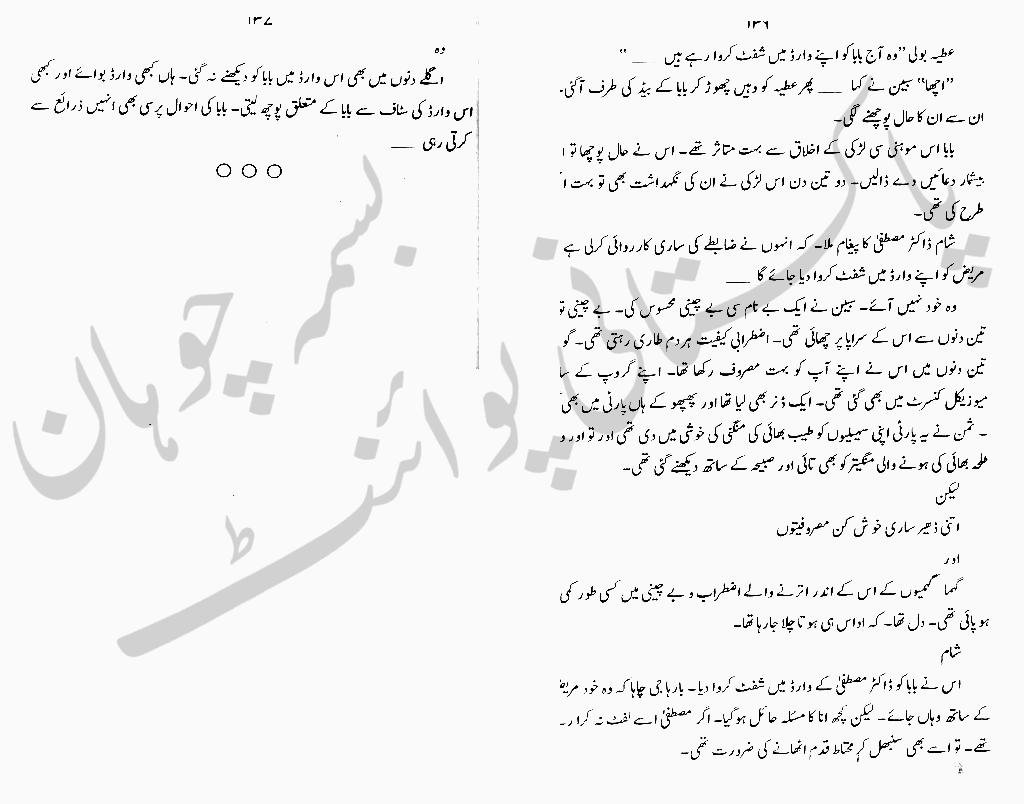 ۱۳۶
عطیہ بولی ”وہ آج بابا کو اپنے وارڈ میں شفٹ کروا رہے ہیں ___ “
”اچھا“ سبین نے کہا ___ پھر عطیہ کو وہیں چھوڑ کر بابا کے بیڈ کی طرف آگئی۔
ان سے ان کا حال پوچھنے لگی۔
بابا اس موہنی سی لڑکی کے اخلاق سے بہت متاثر تھے۔ اس نے حال پوچھا تو
بیشمار دعائیں دے ڈالیں۔ دو تین دن اس لڑکی نے ان کی نگہداشت بھی تو بہت
طرح کی تھی۔
شام ڈاکٹر مصطفیٰ کا پیغام ملا۔ کہ انہوں نے ضابطے کی ساری کارروائی کرلی ہے
مریض کو اپنے وارڈ میں شفٹ کروا دیا جائے گا ___
وہ خود نہیں آئے۔ سبین نے ایک بے نام سی بے چینی محسوس کی۔ بے چینی تو
تین دنوں سے اس کے سراپا پر چھائی تھی۔ اضطرابی کیفیت ہر دم طاری رہتی تھی۔ گو
تین دنوں میں اس نے اپنے آپ کو بہت مصروف رکھا تھا۔ اپنے گروپ کے سا
میوزیکل کنسرٹ میں بھی گئی تھی۔ ایک ڈنر بھی لیا تھا اور پھپھو کے ہاں پارٹی میں بھی
۔ ثمن نے یہ پارٹی اپنی سہیلیوں کو طیب بھائی کی منگنی کی خوشی میں دی تھی اور تو اور و
طلحہ بھائی کی ہونے والی منگیتر کو بھی تائی اور صبیحہ کے ساتھ دیکھنے گئی تھی۔
لیکن
اتنی ڈھیر ساری خوش کن مصروفیتوں
اور
گہما گہمیوں کے اس کے اندر اترنے والے اضطراب و بے چینی میں کسی طور کمی
ہو پائی تھی۔ دل تھا۔ کہ اداس ہی ہوتا چلا جا رہا تھا۔
شام
اس نے بابا کو ڈاکٹر مصطفیٰ کے وارڈ میں شفٹ کروا دیا۔ بارہا جی چاہا کہ وہ خود مریض
کے ساتھ وہاں جائے۔ لیکن کچھ انا کا مسئلہ حائل ہوگیا۔ اگر مصطفیٰ اسے لفٹ نہ کرا ر۔
تھے۔ تو اسے بھی سنبھل کر محتاط قدم اٹھانے کی ضرورت تھی۔
۱۳۷
وہ
اگلے دنوں میں بھی اس وارڈ میں بابا کو دیکھنے نہ گئی۔ ہاں کبھی وارڈ بوائے اور کبھی
اس وارڈ کی سٹاف سے بابا کے متعلق پوچھ لیتی۔ بابا کی احوال پرسی بھی انہیں ذرائع سے
کرتی رہی ___
○ ○ ○
پاکستانی پوائنٹ
بسمہ چوہان